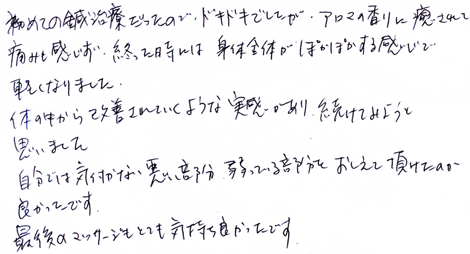 初めての鍼治療だったので、ドキドキでしたが、アロマの香りに癒されて
痛みも感じず、終った時には身体全体がぽかぽかする感じで
軽くなりました。
体の中から改善されていくような実感があり、続けてみようと
思いました
自分では気付かない悪い部分、弱っている部分を おしえて頂けたのが
良かったです。
最後のマッサージもとても気持ち良かったです。